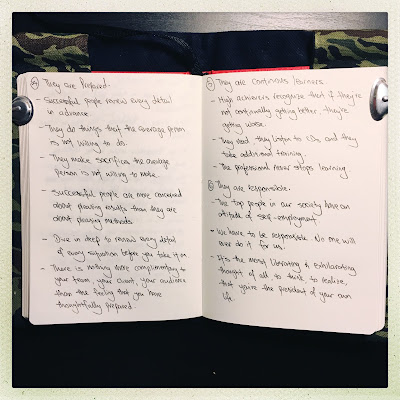 ④ They are Prepared.
- Successful people review every detail
in advance.
- They do things that the average person
is not willing to do.
- They make sacrifices the average
person is not willing to make.
- Successful people are more concerned
about pleasing results than they are
about pleasing methods.
- Dive in deep to review every detail
of every situation before you take it on
- There is nothing more complimentary to
your team, your client, your audience
than the feeling that you have
thoughtfully prepared.
They are continuous learners.
- High achievers recognize that if they're
not continually getting better, they're
getting worse.
- They read, they listen to CDs, and they
take additional training.
- The professional never stops learning
⑥ They are responsible.
- The top people in our society have an
attitude of self-employment.
- We have to be responsible. No one will
ever do it for us.
- It's the most liberating & exhilarating
thought of all to think to realize,
that you're the president of your own
life.